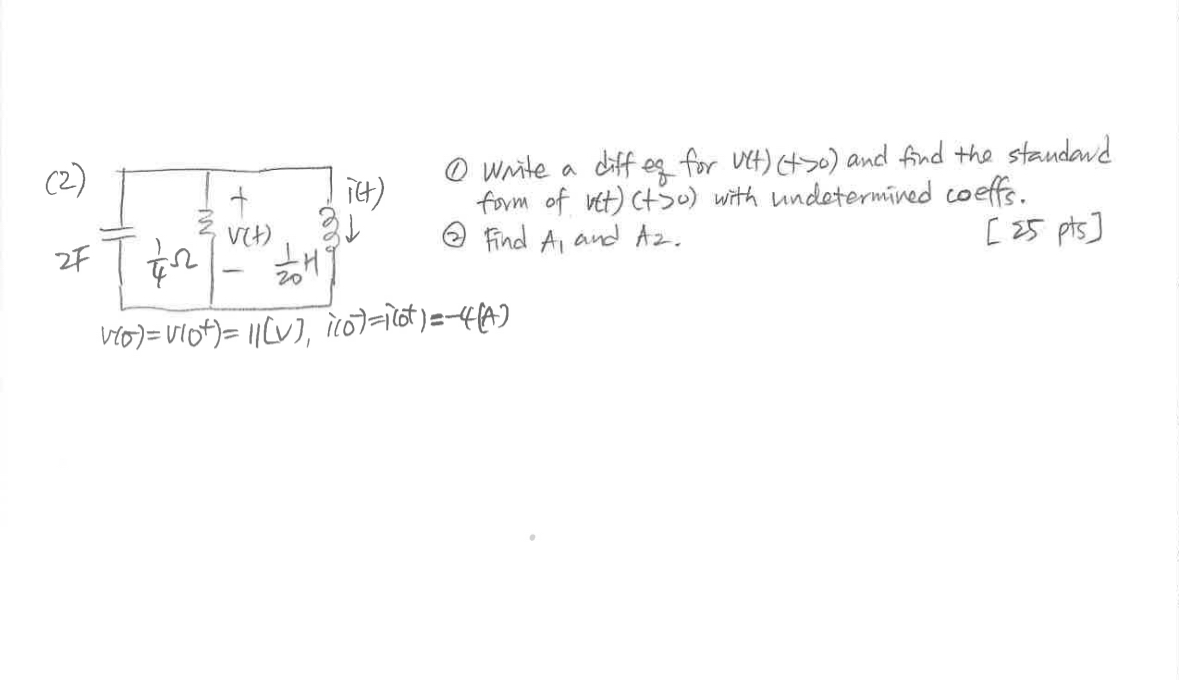 (2)
① Write a diff eq for v(t) (t>0) and find the standard
form of v(t) (t>0) with undetermined coeffs.
② Find A1 and A2. [25 pts]
i(t)
+
v(t)
−
2F
1/4 Ω
1/20 H
v(0-)=v(0+)= 11[V], i(0-)=i(0+)=-4(A)